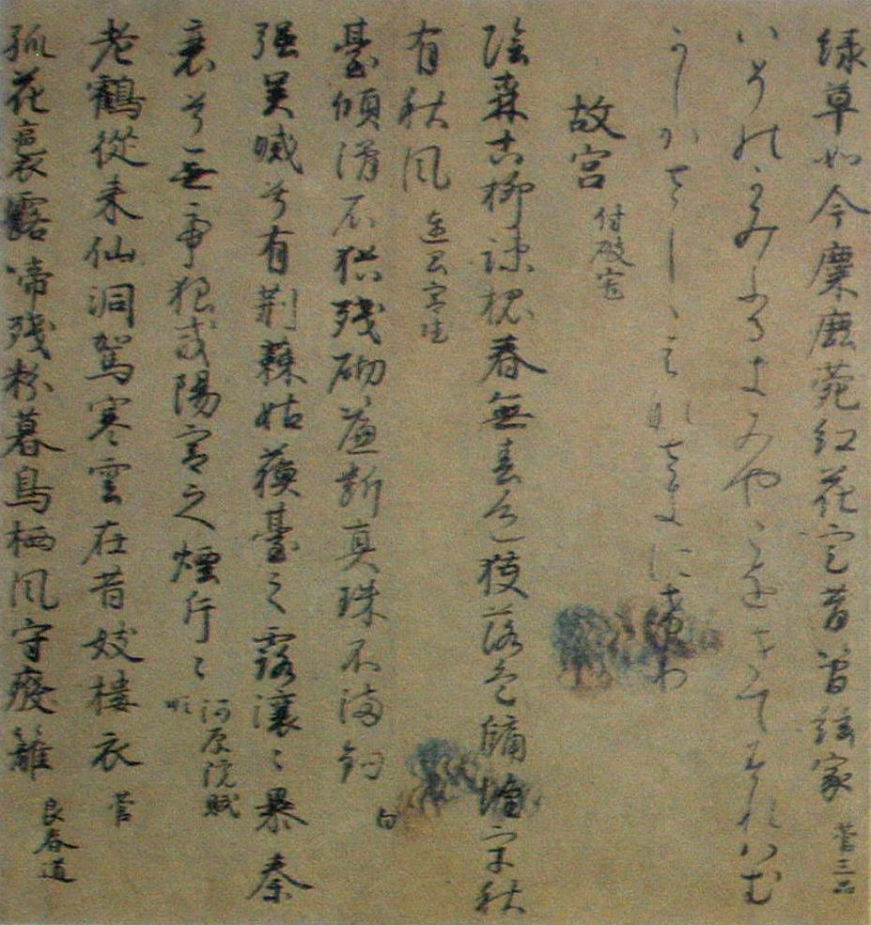 緑草如今麋鹿苑紅花定昔管絃家 菅三品
いそのかみふるきみやこをきてみれはむ
かしかさしゝはなさきにけり
故宮 付破宅
陰森古柳疎槐春無春色獲落危牖壊宇秋
有秋風 連昌宮賦
臺傾滑石猶残砌簾断真珠不満鈎 白
強呉滅兮有荊蕀姑蘇臺之露瀼〻暴秦
衰兮無虎狼咸陽宮之煙片〻 河原院賦 順
老鶴従来仙洞駕寒雲在昔妓樓衣 菅
孤花裛露啼残粉暮鳥栖風守廢籬 良春道